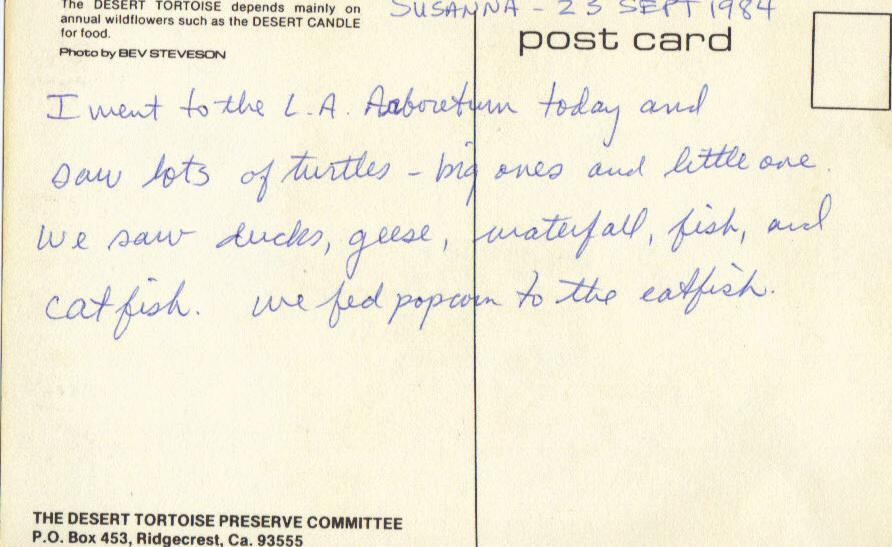 The DESERT TORTOISE depends mainly on
annual wildflowers such as the DESERT CANDLE
for food.
Photo by BEV STEVESON
SUSANNA - 23 SEPT 1984
post card
I went to the L.A. Arboretum today and
saw lots of turtles - big ones and little one.
We saw ducks, geese, waterfall, fish, and
catfish. We fed popcorn to the catfish.
THE DESERT TORTOISE PRESERVE COMMITTEE
P.O. Box 453, Ridgecrest, Ca. 93555